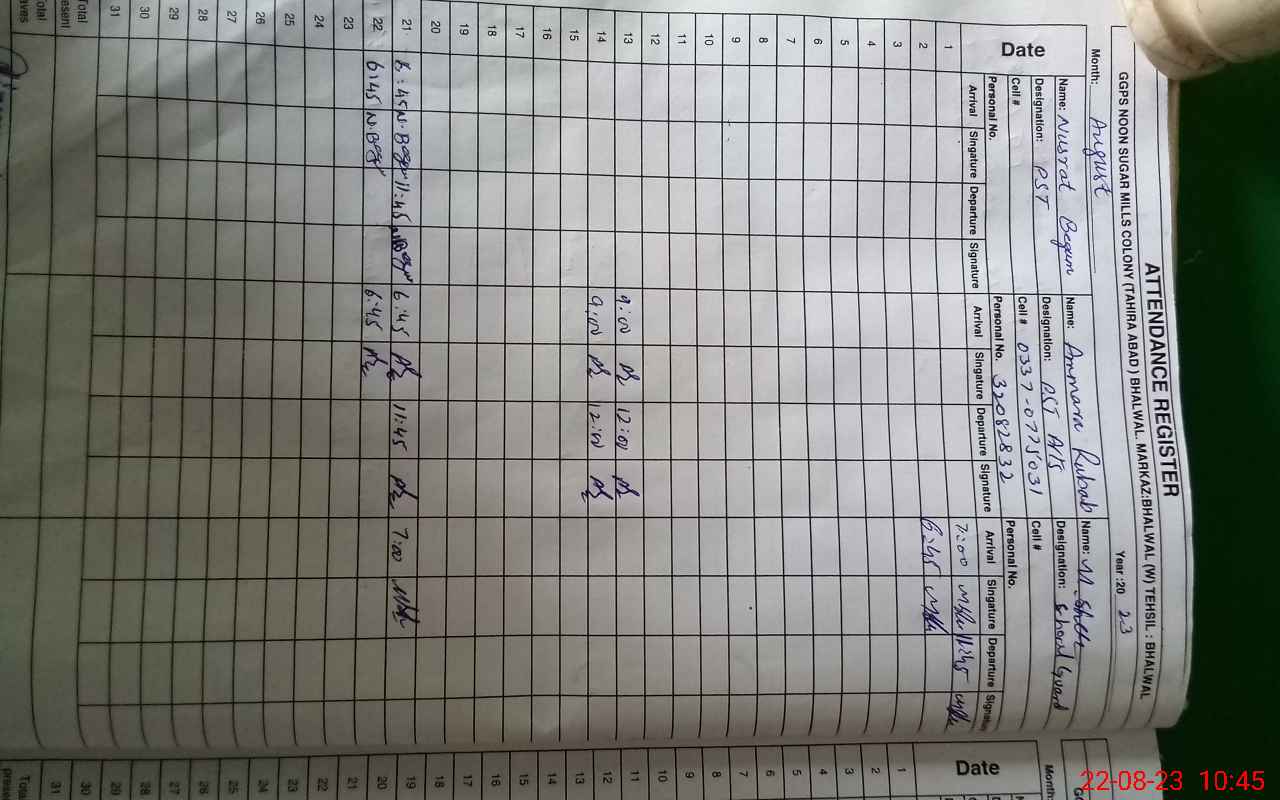 ATTENDANCE REGISTER
GGPS NOON SUGAR MILLS COLONY (TAHIRA ABAD ) BHALWAL. MARKAZ:BHALWAL (W) TEHSIL : BHALWAL
Month: August Year :20 23
Date
Name: Nusrat Begum Name: Ammara Rubab Name:
Designation: PST Designation: PST Designation: School Guard
Cell # Cell # 0337-0775031 Cell #
Personal No. Personal No. 32082832 Personal No.
Arrival Singature Departure Signature Arrival Singature Departure Signature Arrival Singature Departure Signature
1 7:00 11:45
2 6:45
3
4
5
6
7
8
9
10
11
12
13 9:00 12:00
14 9:00 12:00
15
16
17
18
19
20
21 8:45 N.Begum 11:45 N.Begum 6:45 11:45 7:00
22 6:45 N.Begum 6:45
23
24
25
26
27
28
29
30
31
Total
Total
Date
Month:
1
2
3
4
5
6
7
8
9
10
11
12
13
14
15
16
17
18
19
20
21
22
23
24
25
26
27
28
29
30
31
Total
22-08-23 10:45